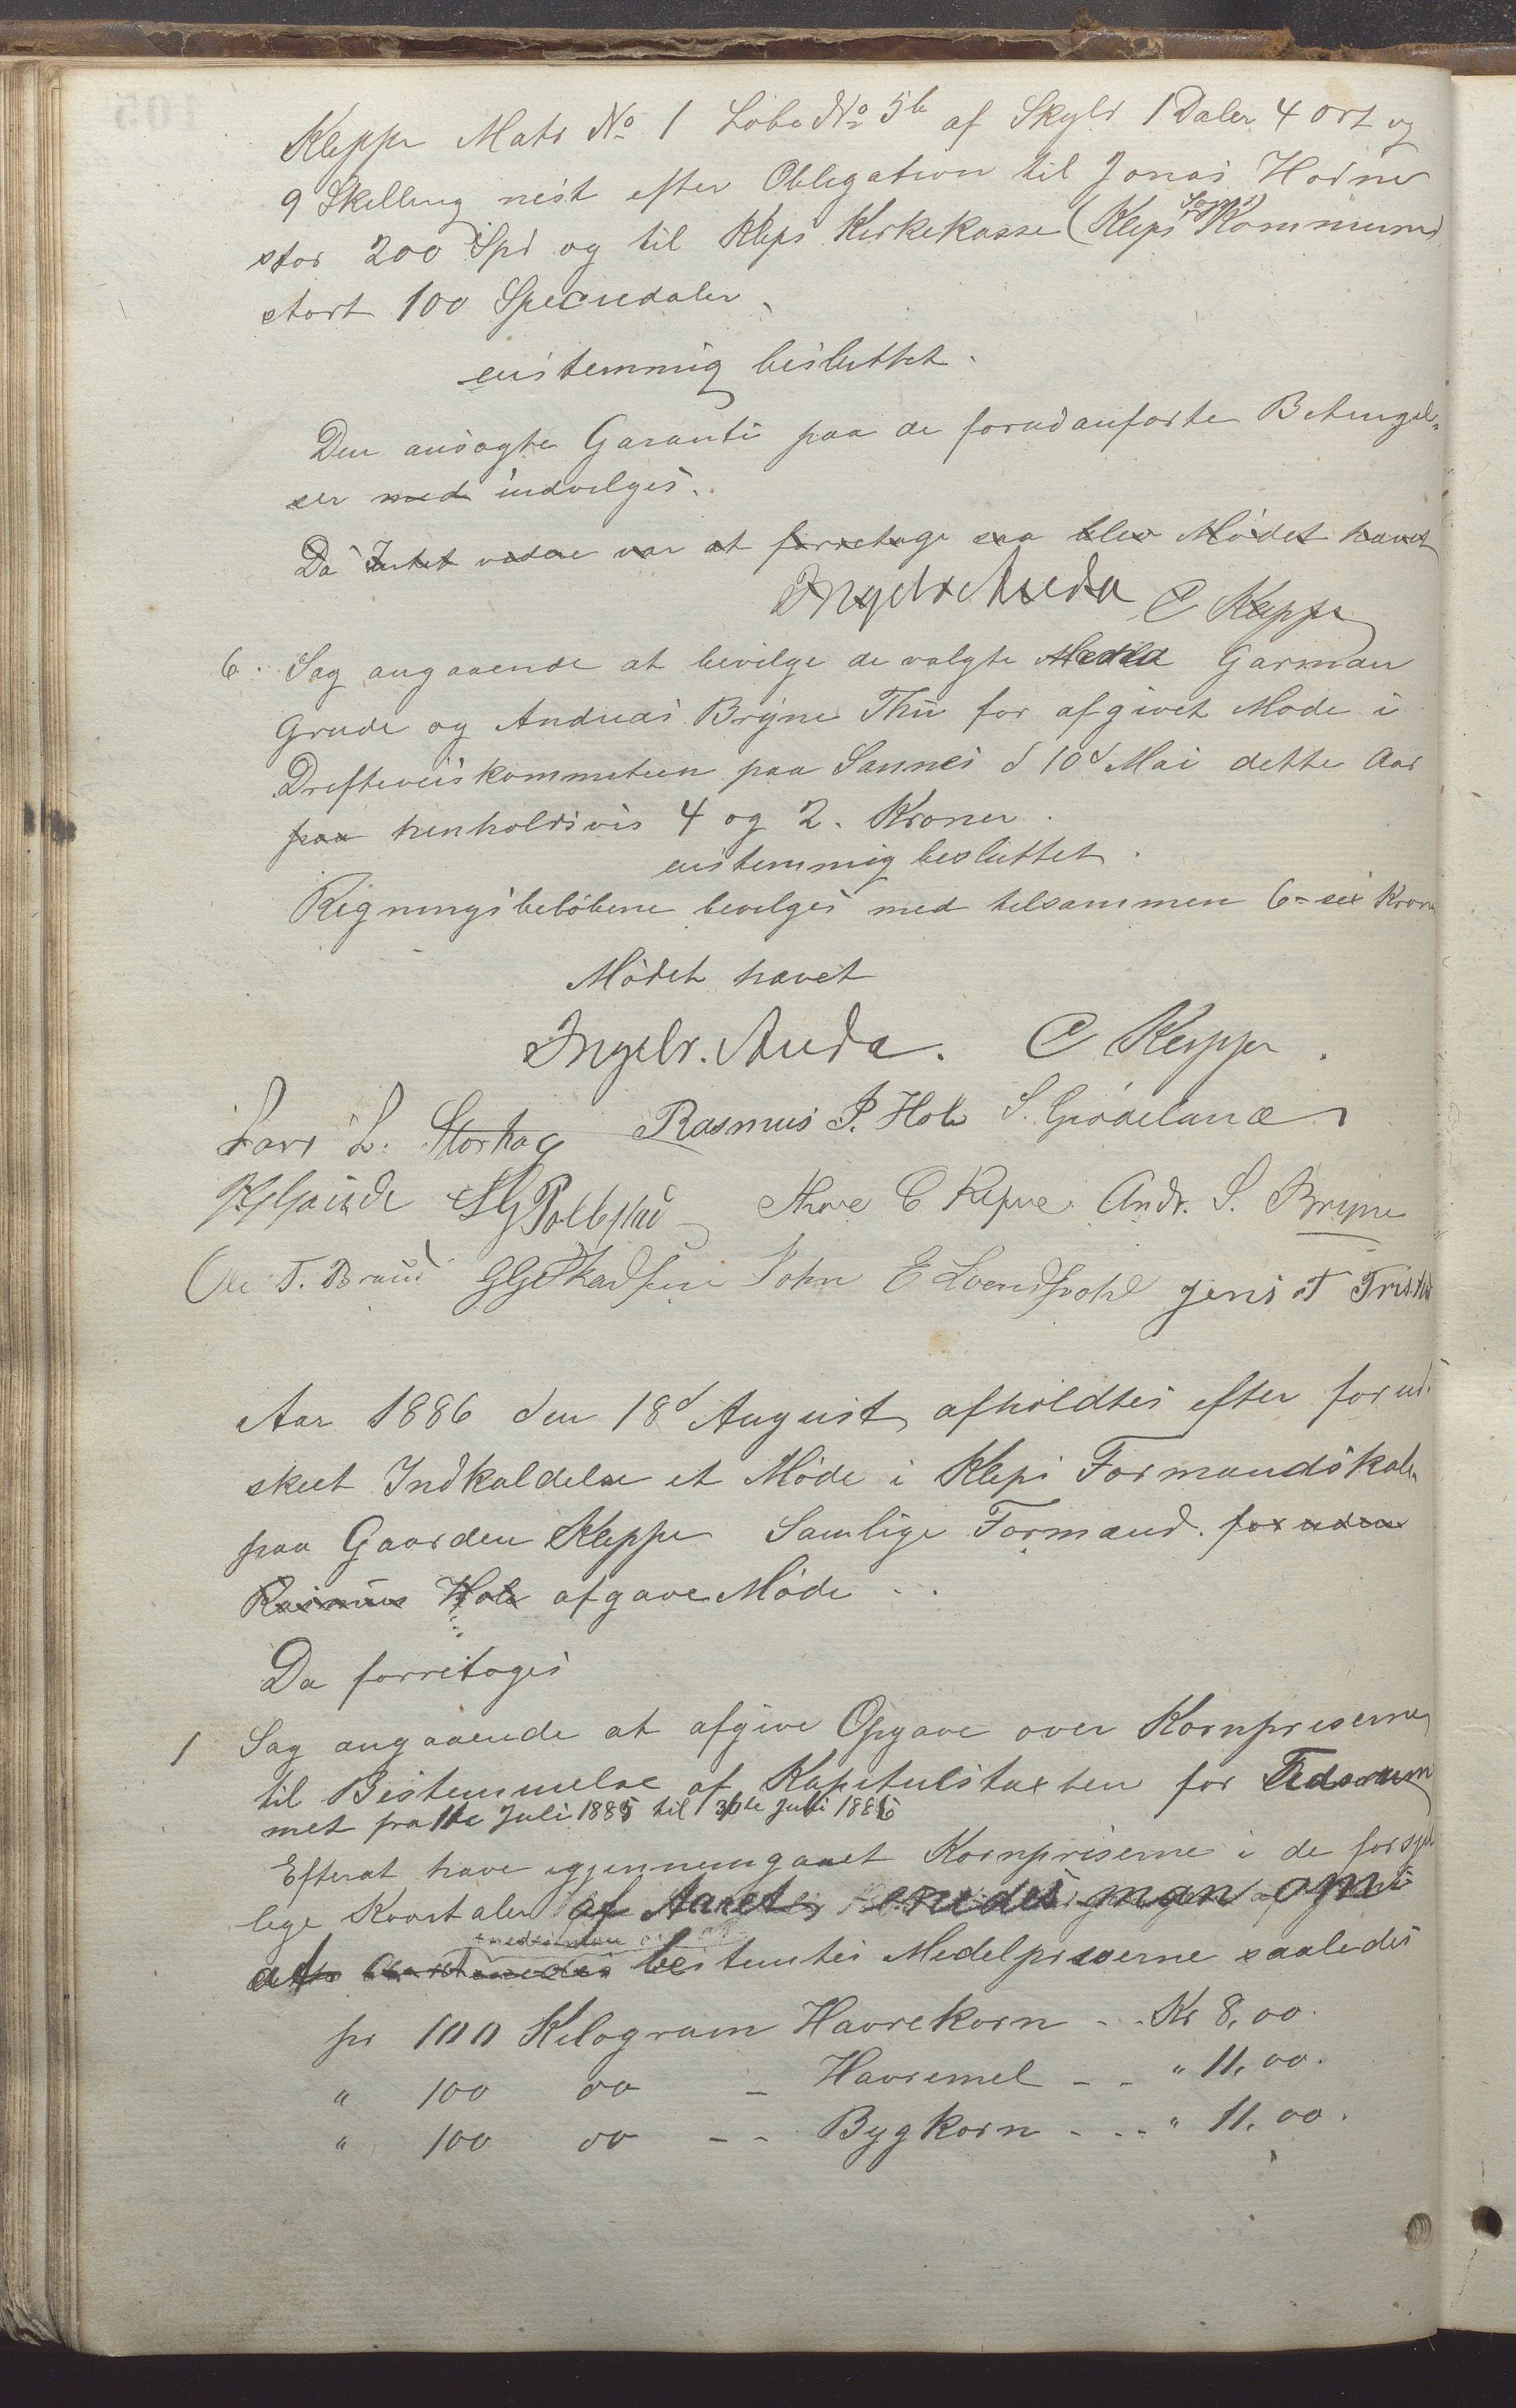 Kleppe Matr № 1 Löbe № 5b af Skyld 1 Daler 4 ort og
9 Skelling nest efter Obligation til Jonas Hodne
stor 200 Spd og til Kleps Kirkekasse (Kleps Sogns Kommune)
stort 100 Speciedaler.
enstemmig besluttet.
Den ansøgte Garanti paa de forudanførte Betingel-
ser med indvelges.
Da Intet videre var at forretage saa blev Mödet havet
Ingebr Auda C Kleppe
6. Sag angaaende at bevilge de valgte Garman
Grude og Andreas Bryne Thu for afgivet Møde i
Drifteveiskommiteen paa Sannes d 10d Mai dette Aar
paa henholdsvis 4 og 2. Kroner.
enstemmig besluttet.
Regningsbelöbene bevelges med telsammen 6 = sex Kron
Mödet havet
Ingebr. Auda. C Kleppe.
Lars L. Storhag Rasmus P. Hole S. Grödeland
Tore C Kleppe Andr. S. Bryne
Ole T. Braud John E Jens T
Aar 1886 den 18d August afholdtes efter forud.
skeet Indkaldelse et Möde i Kleps Formandskab
paa Gaarden Kleppe Samlige Formænd. foruden
Rasmus Hole afgave Möde ..
Da forretoges
1 Sag angaaende at afgive Opgave over Kornpriserne
til Bestemmelse af Kapitulstaxten for Tidsrum
met fra 1te Juli 1885 til 30te Juli 1886
Efterat have igjennemgaaet Kornpriserne i de forsjel
lige Kvartaler af Aaret enedes man om
at bestemtes Medelpriserne saaledes
pr 100 Kilogram Havrekorn - - Kr 8,00.
" 100 do - Havremel - - " 11,00.
" 100 do - - Bygkorn - - - " 11,00.